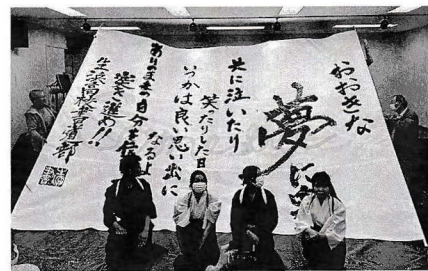 おおきな
夢に
共に泣いたり
笑ったりした日
いつかは良い思い出に
なるよ
ありのままの自分を信
突き進め!!
高校書道部